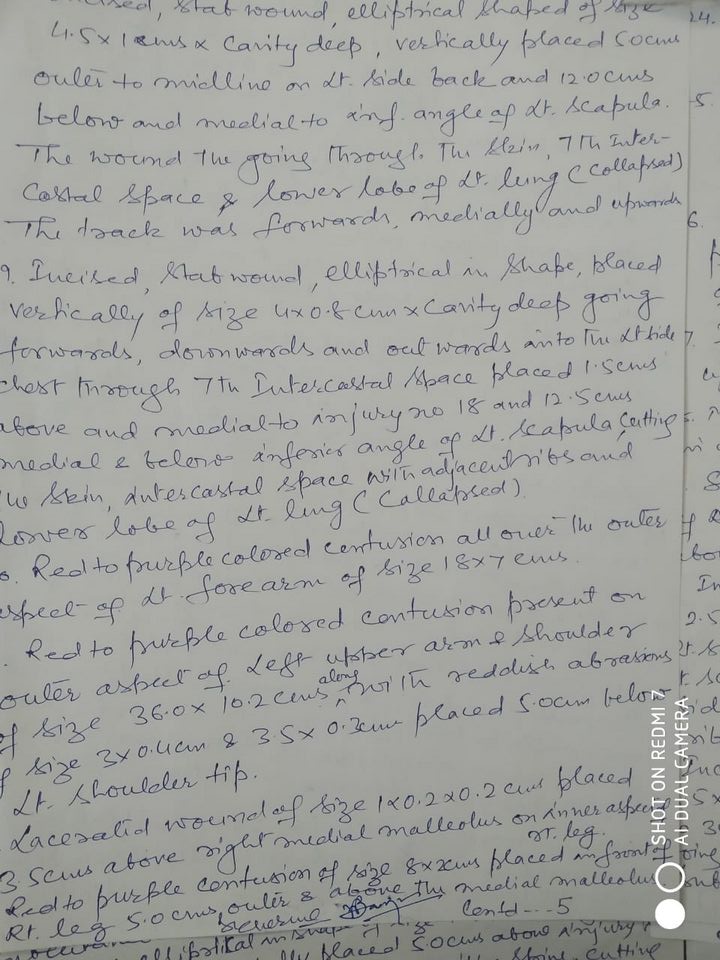 Incised, stab wound, elliptical shaped of size
4.5 x 1 cms x Cavity deep, vertically placed 5.0cms
outer to midline on Lt. side back and 12.0 cms
below and medial to inf. angle of Lt. Scapula.
The wound the going through the skin, 7th Inter-
Costal space & lower lobe of Lt. lung (Collapsed)
The track was forwards, medially and upwards
9. Incised, stab wound, elliptical in shape, placed
vertically of size 4x0.8 cm x Cavity deep going
forwards, downwards and outwards into the Lt side
chest through 7th Intercastal space placed 1.5cms
above and medial to injury no 18 and 12.5cms
medial & below inferior angle of Lt. Scapula, Cutting
the skin, intercastal space with adjacent ribs and
lower lobe of Lt. lung (Collapsed).
Red to purple colored contusion all over the outer
aspect of Lt. forearm of size 18x7 cms.
Red to purple colored contusion present on
outer aspect of Left upper arm & shoulder
of size 36.0 x 10.2 cms along with reddish abrasions
of size 3x0.4cm & 3.5x0.3cm placed 5.0cm below
Lt. shoulder tip.
Laceralid wound of size 1x0.2x0.2 cms placed
3.5cms above right medial malleolus on inner aspect
rt. leg.
Red to purple contusion of size 8x2cms placed in front of
Rt. leg 5.0 cms outer & above the medial malleolus
Contd---5
elliptical in shape
placed 5.0cms above injury
cutting
24.
5.
6.
7.
2.5
SHOT ON REDMI 7
AI DUAL CAMERA